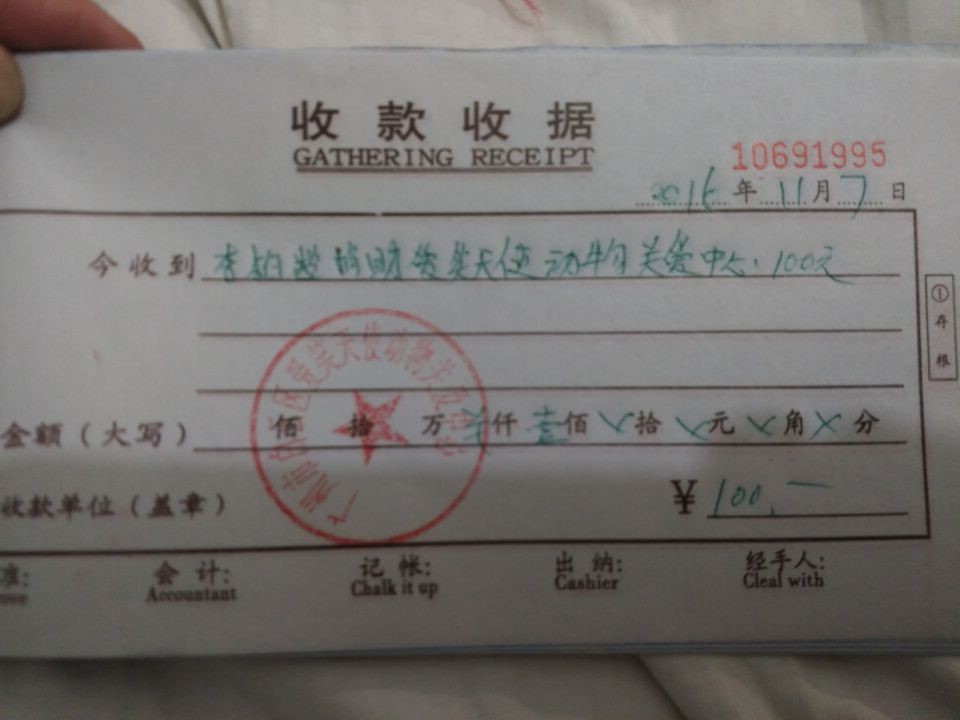 收款收据
GATHERING RECEIPT
10691995
2016年11月7日
今收到 天使动物关爱中心.100元
①存根
金额（大写） 佰 拾 万 仟壹佰 拾 元 角 分
收款单位（盖章） ¥100.—
准: 会计: 记帐: 出纳: 经手人:
Accountant Chalk it up Cashier Cleal with